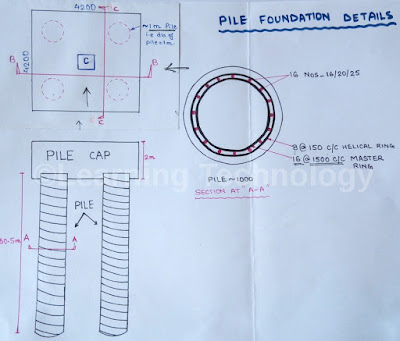 PILE FOUNDATION DETAILS
4200
C
~1m Pile
i.e dia of
pile=1m
4200
C
B
B
C
16 Nos-16/20/25
8@150 C/C HELICAL RING
16@1500 C/C MASTER
RING
PILE ~ 1000
SECTION AT "A-A"
PILE CAP
2m
©Learning Technology
PILE
A
A